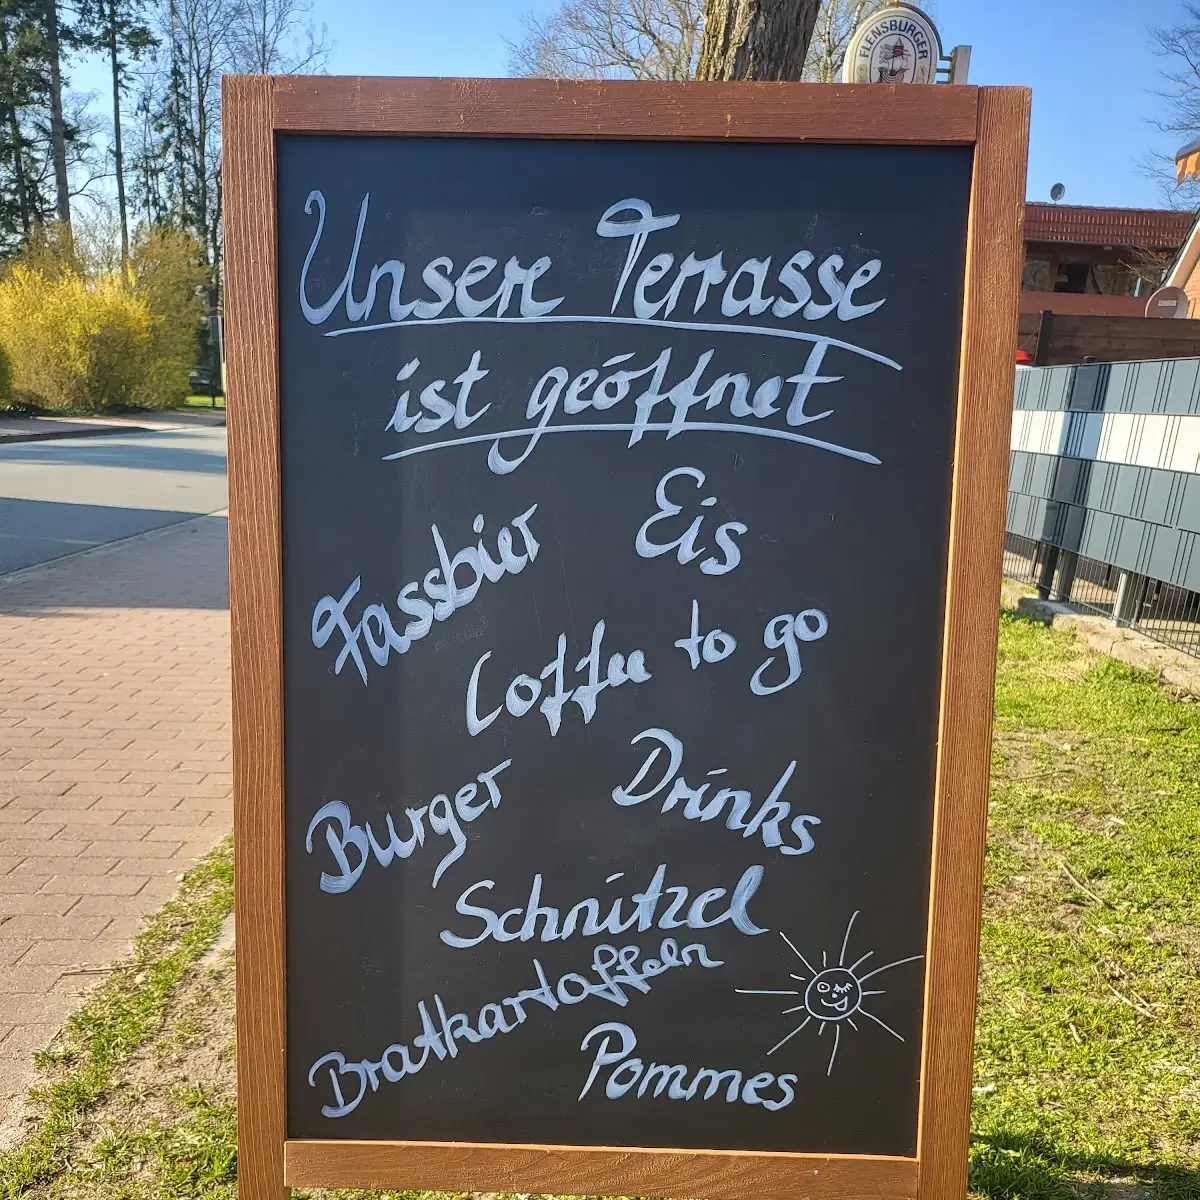 FLENSBURGER
Unsere Terrasse
ist geöffnet
Eis
Fassbier
Coffee to go
Drinks
Burger
Schnitzel
Bratkartoffeln
Pommes